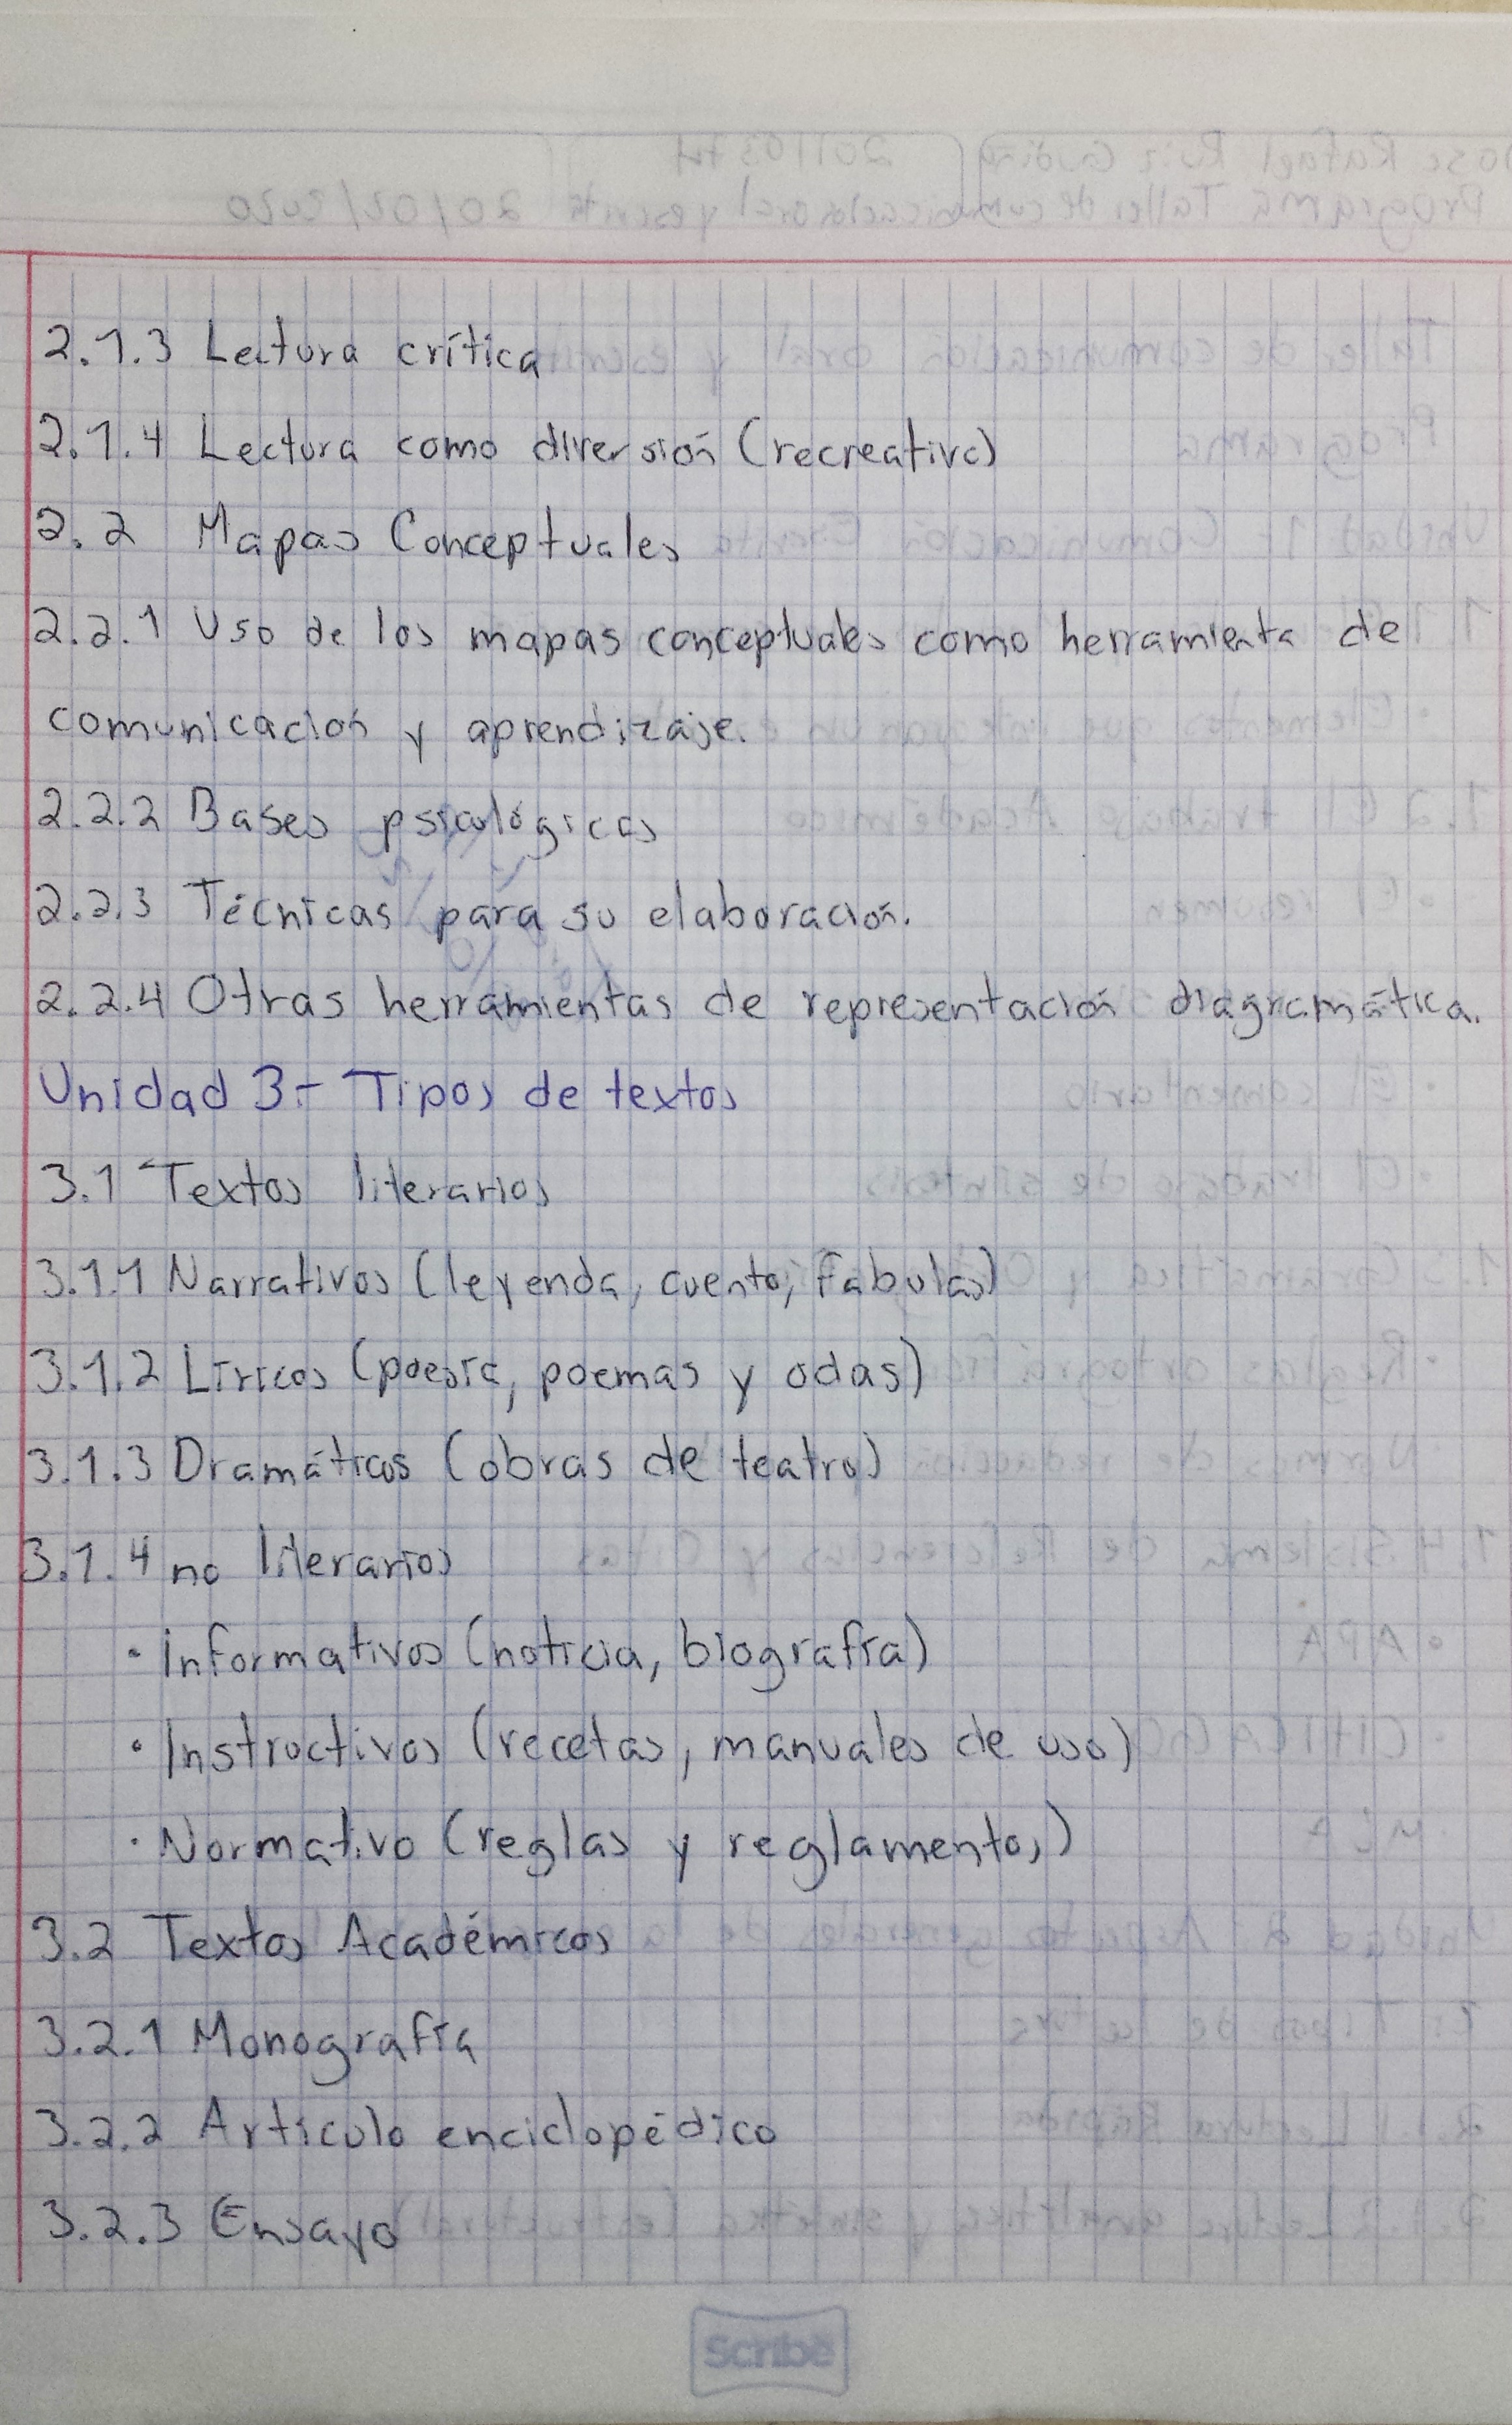 2.1.3 Lectura crítica
2.1.4 Lectura como diversión (recreativa)
2.2 Mapas Conceptuales
2.2.1 Uso de los mapas conceptuales como herramienta de
comunicación y aprendizaje.
2.2.2 Bases psicológicas
2.2.3 Técnicas para su elaboración.
2.2.4 Otras herramientas de representación diagramática.
Unidad 3.- Tipos de textos
3.1 Textos literarios
3.1.1 Narrativos (leyenda, cuento, fabulas)
3.1.2 Líricos (poesía, poemas y odas)
3.1.3 Dramáticos (obras de teatro)
3.1.4 no literarios
· informativos (noticia, biografía)
· Instructivos (recetas, manuales de uso)
· Normativo (reglas y reglamentos)
3.2 Textos Académicos
3.2.1 Monografía
3.2.2 Artículo enciclopédico
3.2.3 Ensayo
Scribe